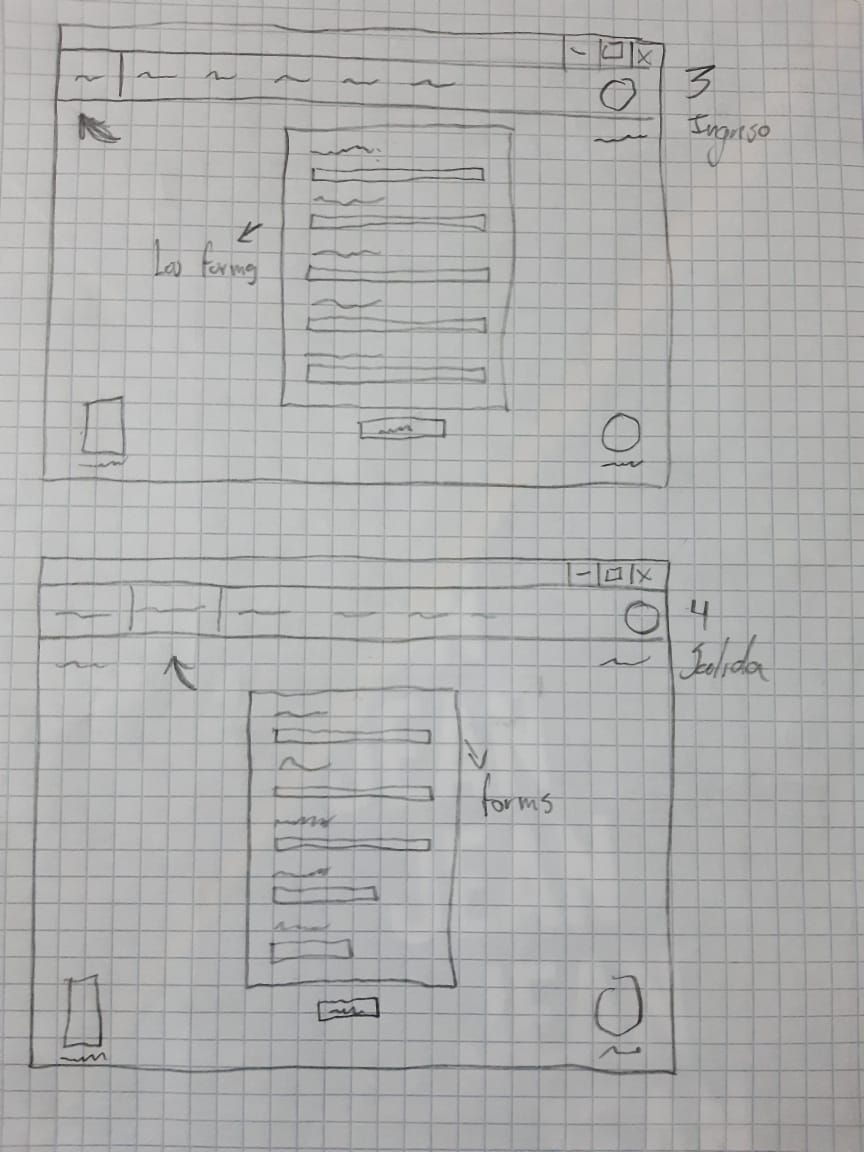 3
Ingreso
forms
4
Salida
forms